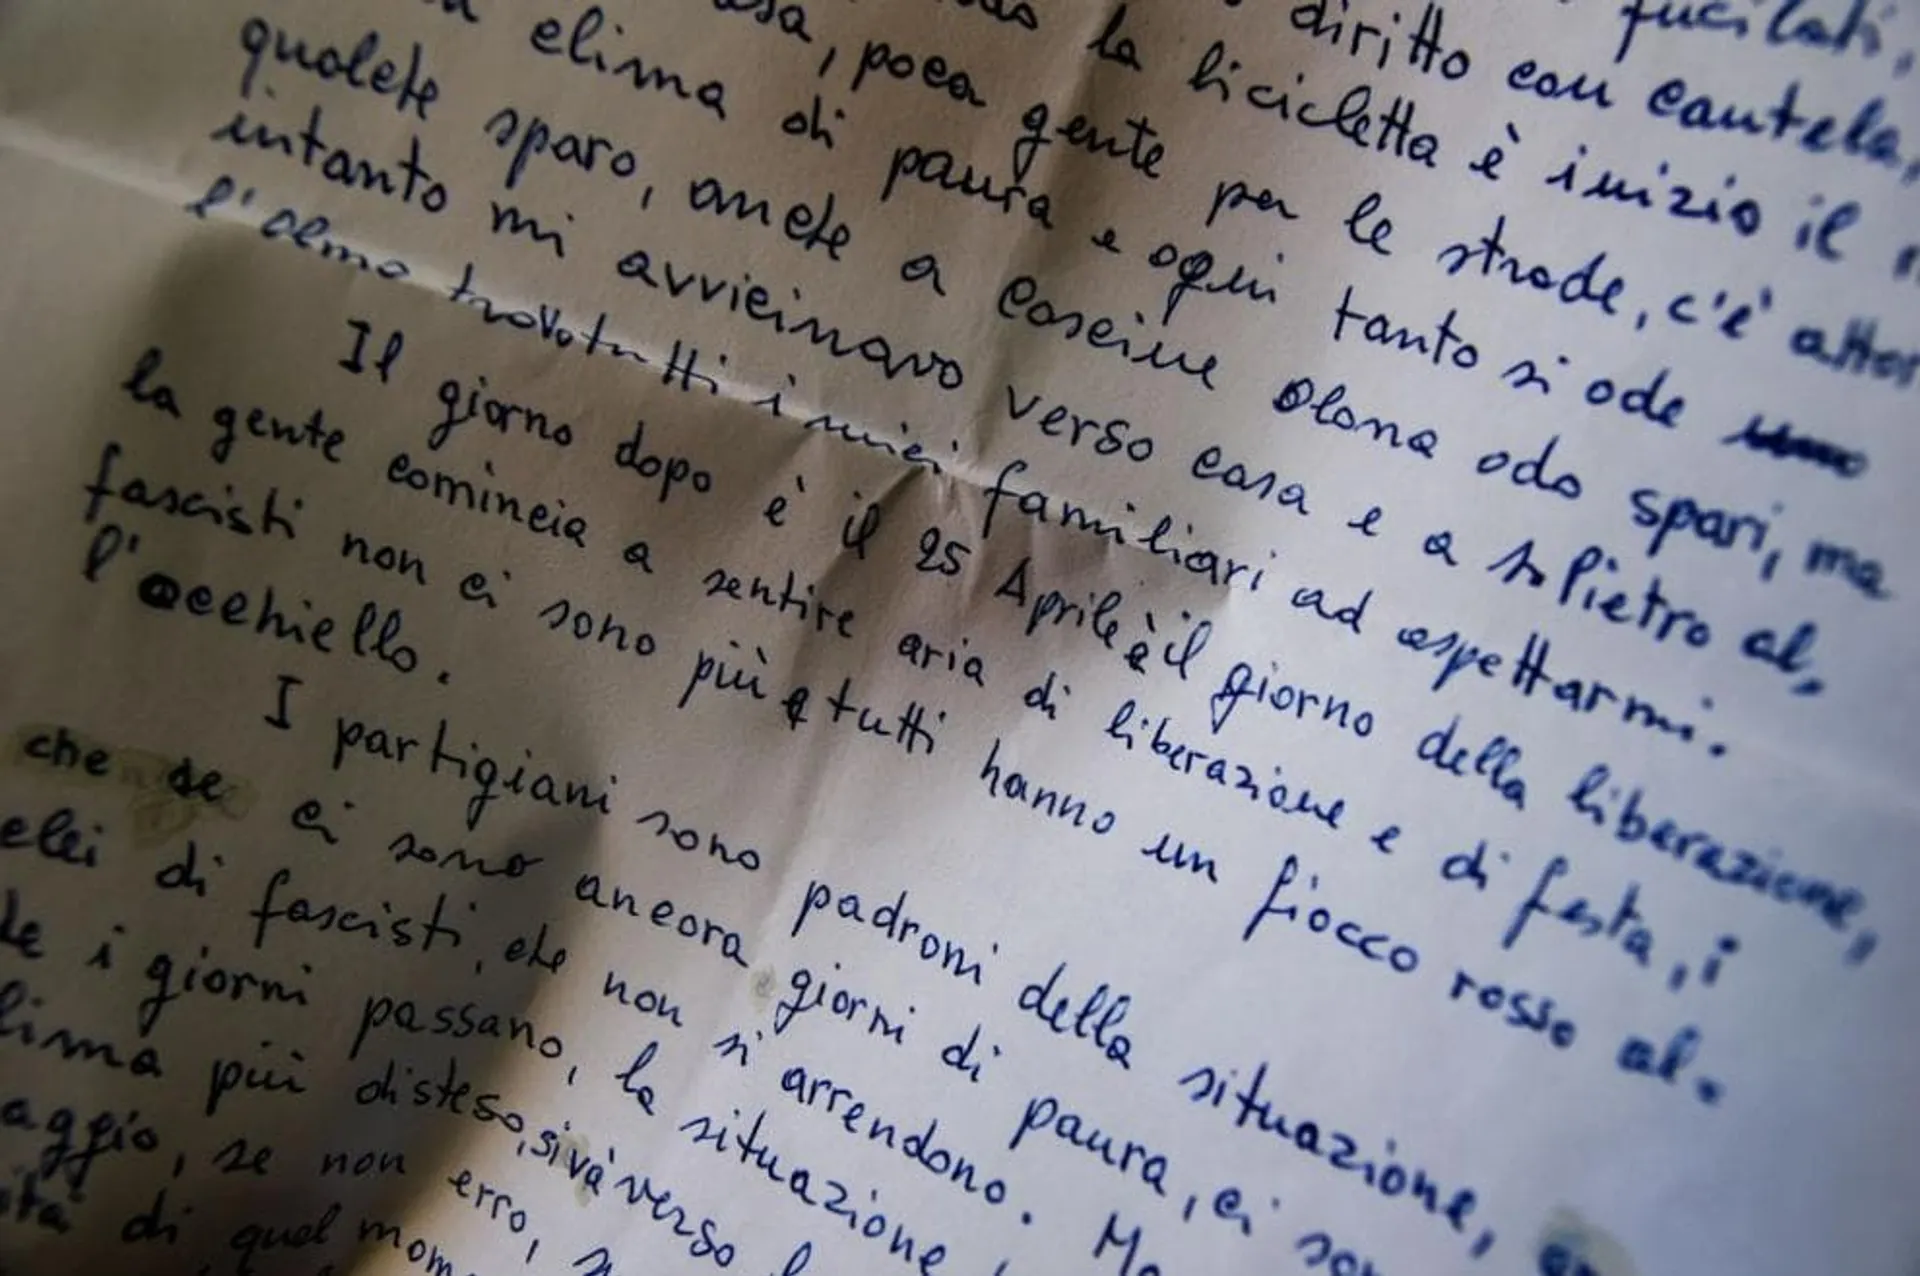 fucilati,
diritto con cautela,
la bicicletta è inizio il
poca gente per le strade, c'è attor
clima di paura e ogni tanto si ode
qualche sparo, anche a Cascine Olona odo spari, ma
intanto mi avvicinavo verso casa e a S. Pietro al,
l'olmo trovo tutti i miei familiari ad aspettarmi.
Il giorno dopo è il 25 Aprile è il giorno della liberazione,
la gente comincia a sentire aria di liberazione e di festa, i
fascisti non ci sono più e tutti hanno un fiocco rosso al.
l'occhiello.
I partigiani sono padroni della situazione, an
che se ci sono ancora giorni di paura, ci son
clei di fascisti, che non si arrendono. Ma
i giorni passano, la situazione
lima più disteso, si và verso
aggio, se non erro,
ità di quel mom